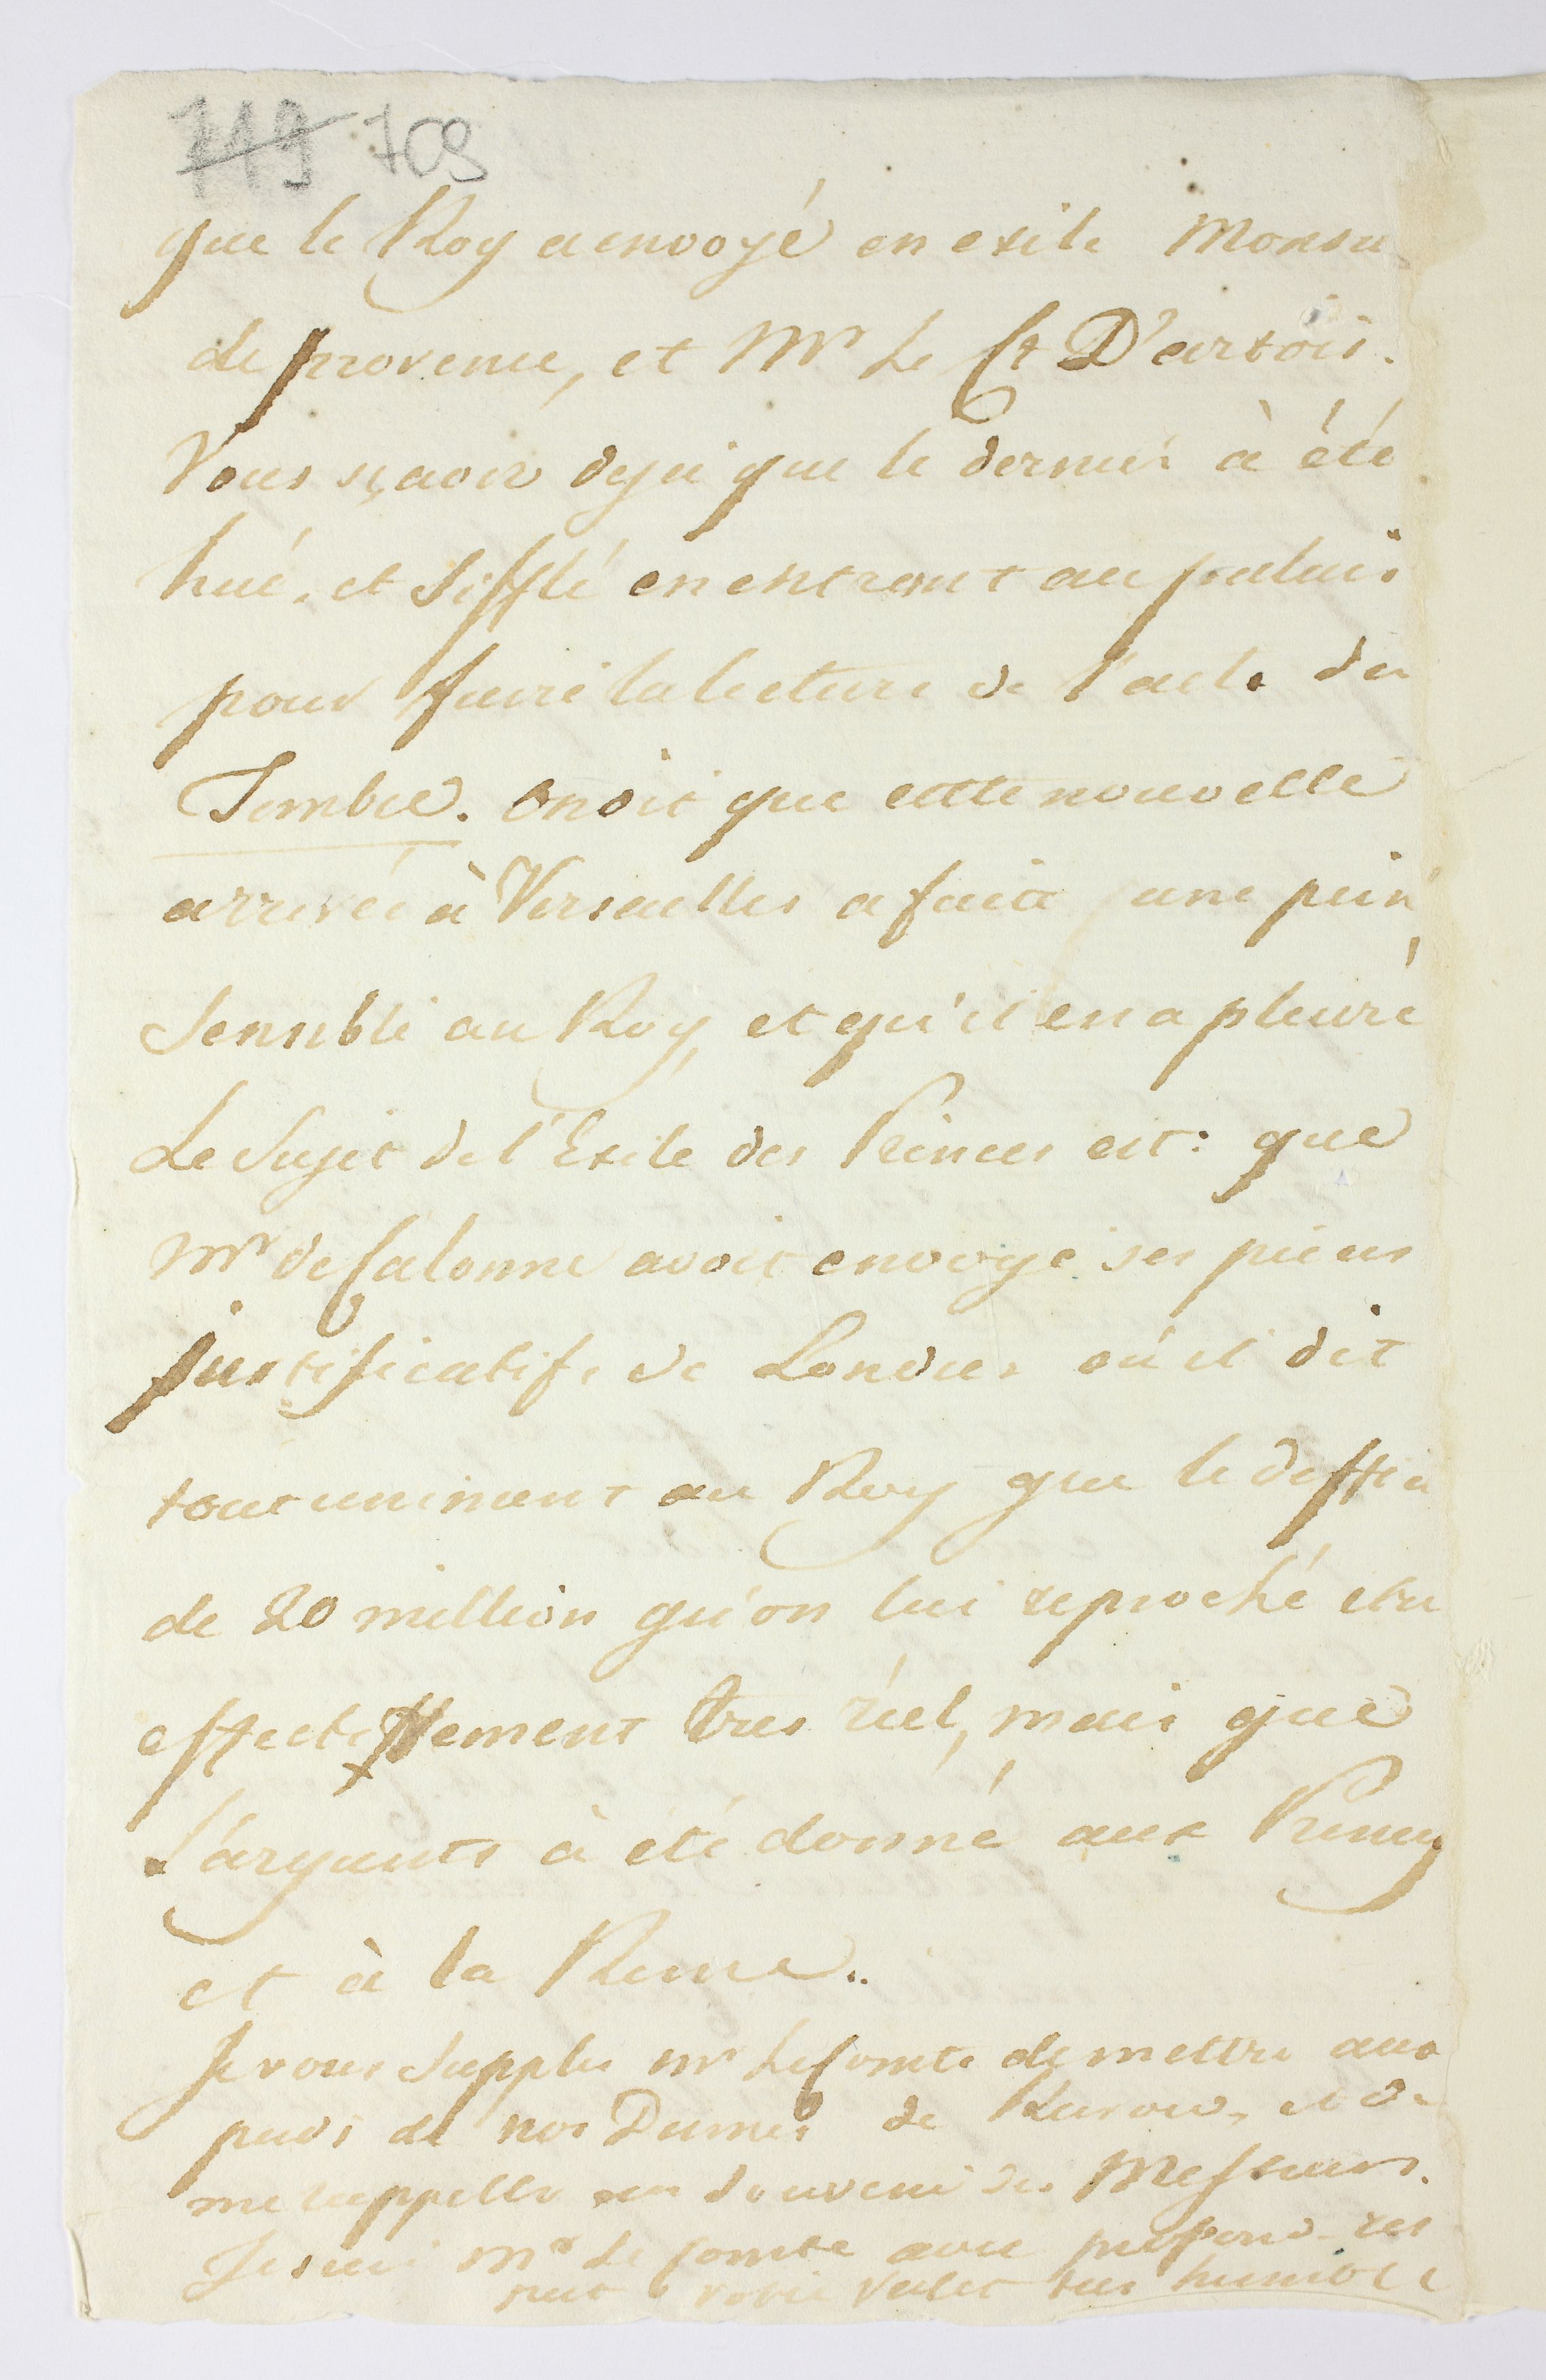 719 709
que le Roy a envoyé en exile Monsu
de provence, et Mr Le Ct D'artois.
Vous sçaver deja que le dernier à été
hué, et Sifflé en entrant au palais
pour faire la lecture de l'acte du
Timbre. on dit que cette nouvelle
arrivée à Versailles a faite une pein
Sensible au Roy, et qu'il en a pleuré
Le Sujet de l'Exile des Princes est: que
Mr de Calonne avoit envoyé ses pieces
justificatifs de Londres où il dit
tout uniment au Roy que le deffici
de 20 million qu'on lui reproché etre
effectiffement tres réel, mais que
l'argents à été donné aux Princes
et à la Reine..
Je vous Supplie Mr Le Comte de mettre aux
pieds de nos Dames de Kurow, et de
me rappeller au Souvenir des Messieurs.
Je suis Mr Le Comte avec profond res
pect votre valet tres humble